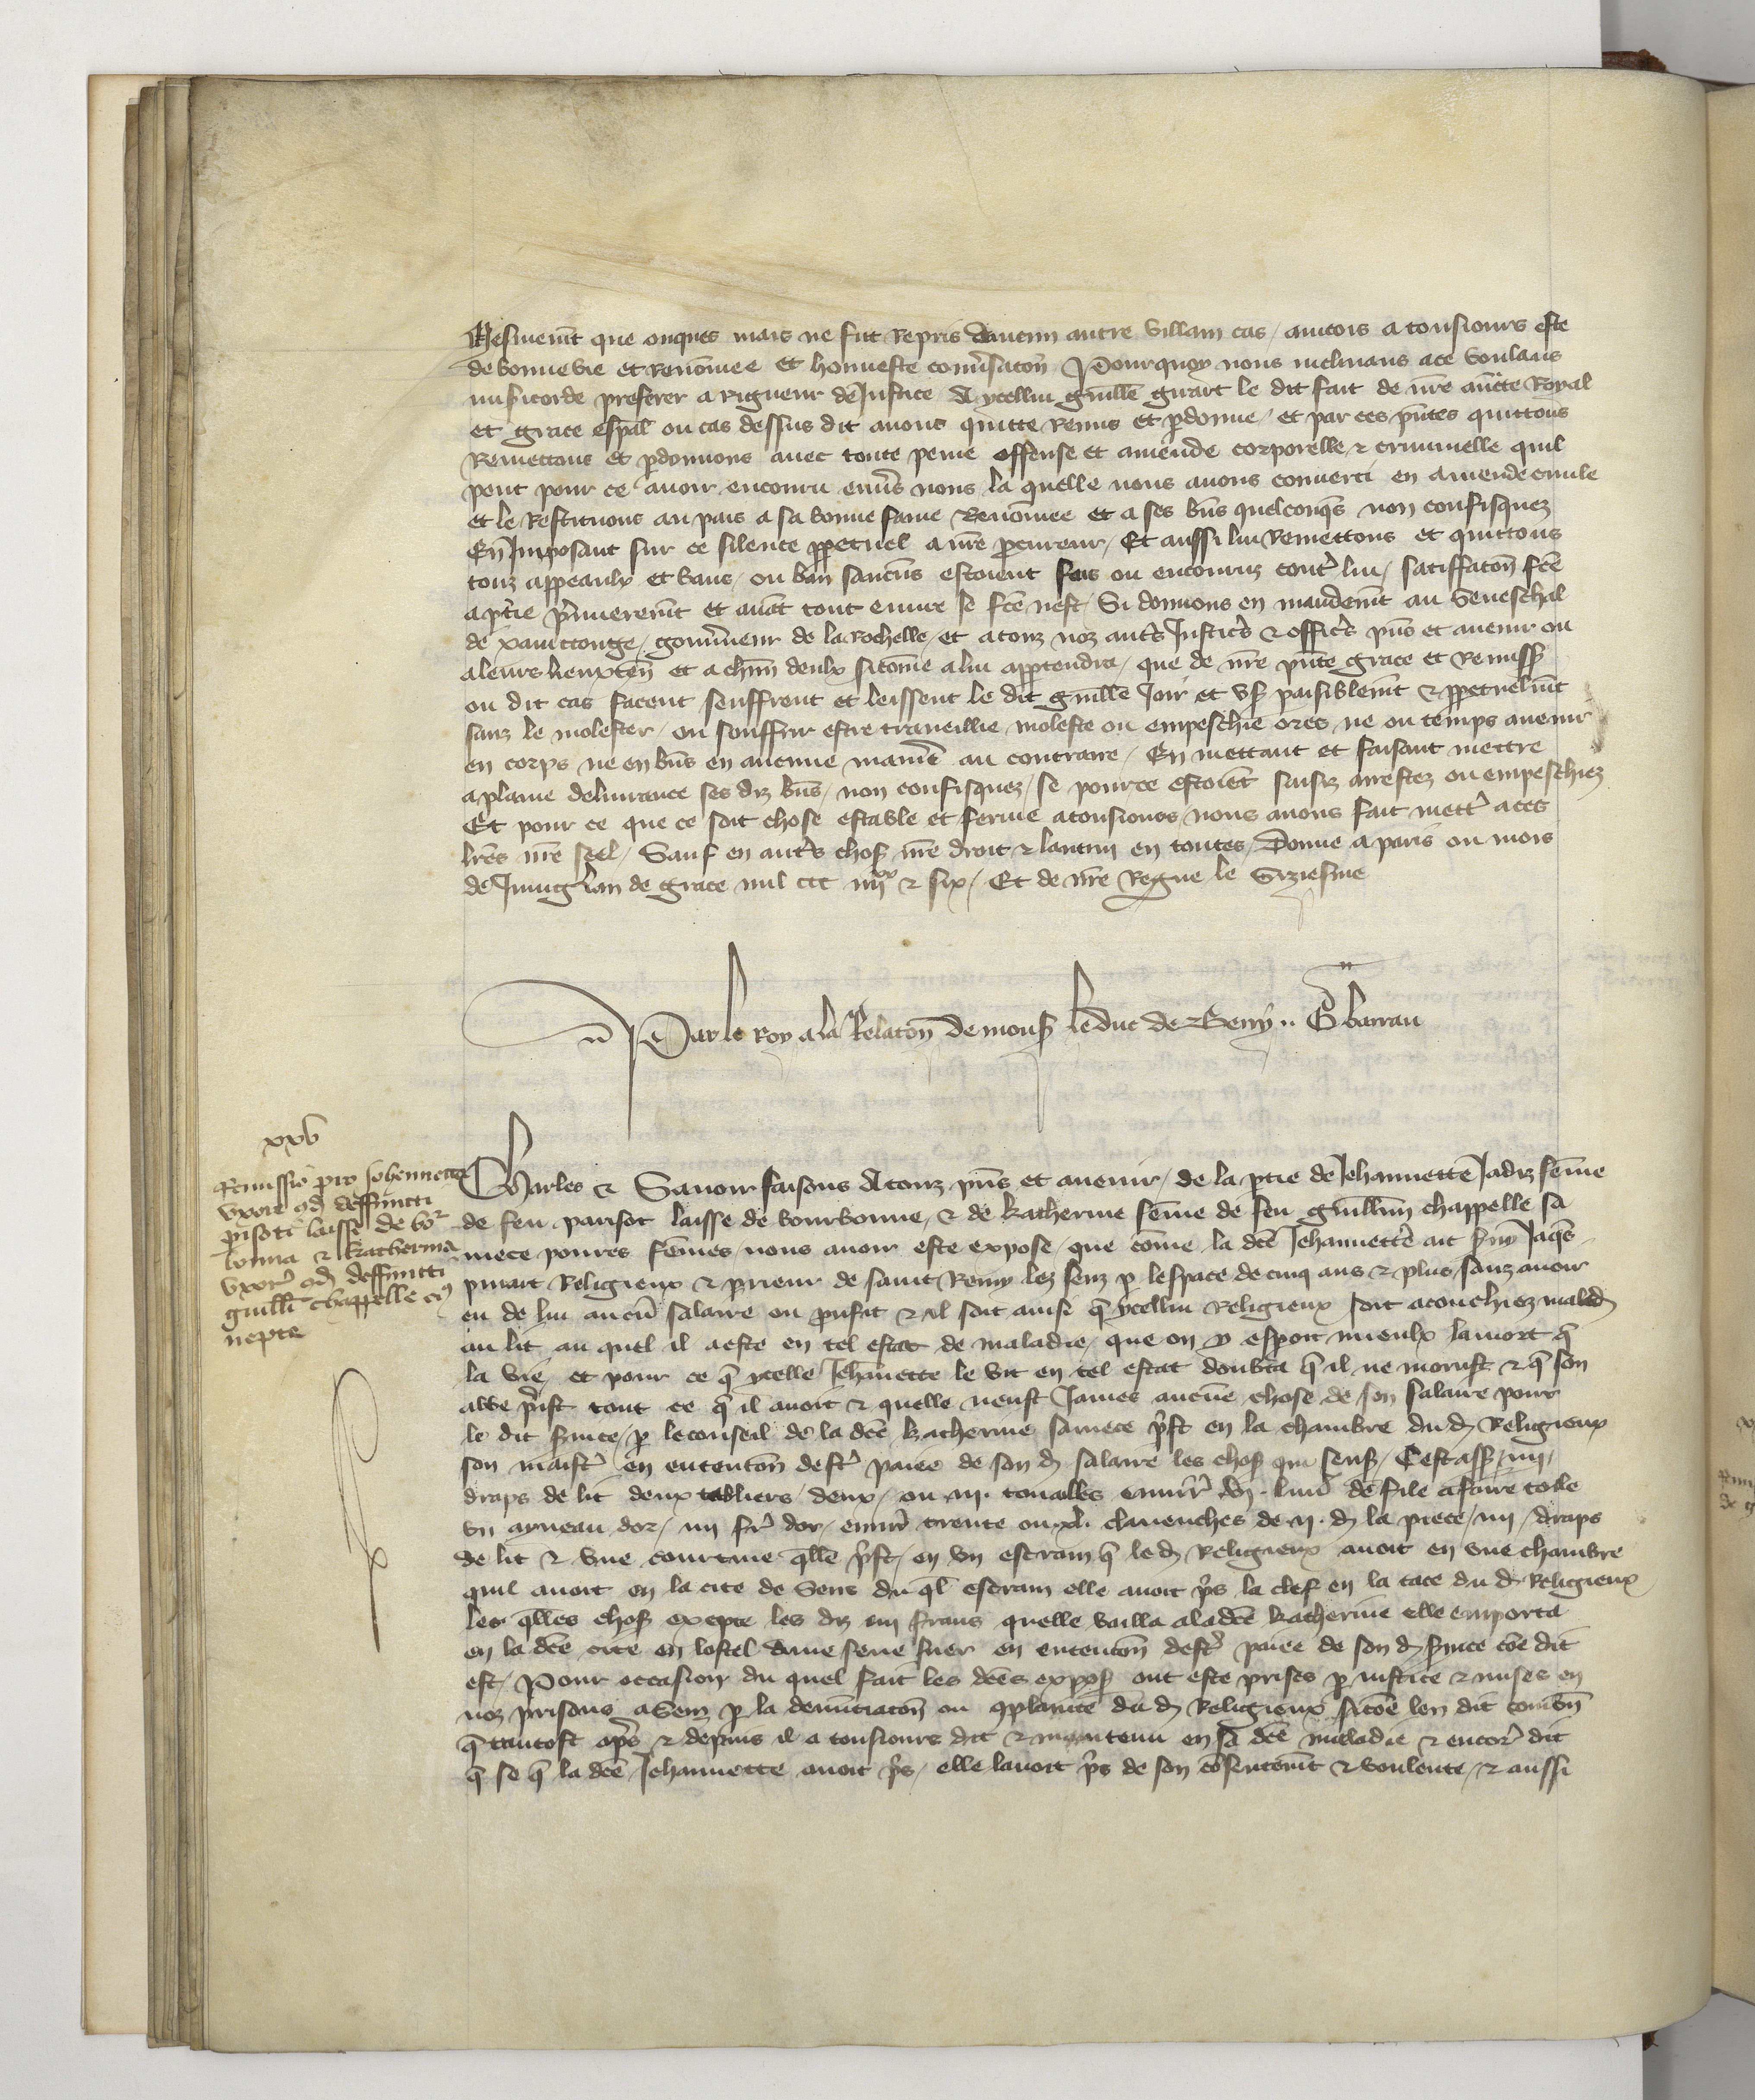 Resmement que onques mais ne fut Repris daucun autre villain cas / aincois a tousiours este
de bonne vie et Renōmee et honneste conūsacōn Pourquoy nous inclinans a ce voulans
misicorde preferer a rigueur de Justice A ycellui guillē girart le dit fait de nr̄e auctē Royal
et grace espāl ou cas dessus dit auons quitte Remis et pdonne / et par ces pn̄tes quittons
Remettons et pdonnons auec toute peine offense et amende corporelle & criminelle quil
peut pour ce auoir encouru enūs nous la quelle nous auons conuerti en amende ciuile
et le Restituons au pais a sa bonne fame Renōmee et a ses bn̄s quelconq̄s non confisquez
En Imposant sur ce silence ppetuel a nr̄e pcureur / Et aussi lui Remettons et quittons
touz appeaulx et bans / ou ban saucūs estoient fais ou encouruz contr̄ lui / satiffacōn fcē
a ptie p̄mierem̄t et auāt tout euure se fcē nest / Si donnons en mandem̄t au Seneschal
de xainctonge / gouūneur de la Rochelle / et a touz noz autr̄s Justicr̄s & officr̄s pn̄s et auenir ou
a leurs lieuxten̄ et a chūn deulx sicōme a lui appartendra / que de nr̄e pn̄te grace et Remiss̄
ou dit cas facent seuffrent et leissent le dit guillē Joir et vs̄ paisiblem̄t & ppetuelm̄t
sanz le molester / ou souffrir estre traueillie moleste ou empeschie ores ne ou temps auenir
en corps ne en bn̄s en aucune manie͞ au contraire / En mettant et faisant mettre
a plaine deliurance ses diz bn̄s / non confisquez / se pour ce estoiēt saisiz arrestez ou empeschiez
Et pour ce que ce soit chose estable et ferme a tousiours nous auons fait mettr̄ a ces
lrēs nr̄e seel / Sauf en autr̄s chos̄ nr̄e droit & lautrui en toutes / Donne a paris ou mois
de Juing lan de grace mil ccc iiijxx & six / Et de nr̄e Regne le Sixiesme
Par le Roy a la Relacōn de mons̄ le duc de Berry .. G barrau
xxv
Remissio pro Johannetta
vxore qd̄ deffuncti
pisoti laisse de bor
bonna & Katherina
vxor̄ qd̄ deffuncti
guill̄i chappelle ei9
nepte
Charles & Sauoir faisons A touz pn̄s et auenir / de la ptie de Jehannette Jadiz fēme
de feu parisot laisse de bourbonne / & de Katherine fēme de feu guillm̄ chappelle sa
niece poures fēmes / nous auoir este expose / que cōme la dcē Jehannette ait s̄ui Jaq̄s
pinart Religieux & prieur de saint Remy lez senz p lespace de cinq ans & plus / sanz auoir
eu de lui aucū salaire ou pufit & il soit ainsi q̄ ycellui Religieux soit acouchiez malad̄
au lit au quel il a este en tel estat de maladie / que on y espoit mieulx la mort q̄
la vie / et pour ce q̄ ycelle Jehānette le vit en tel estat doubta q̄ il ne morust & q̄ son
abbe p̄ist tout ce q̄ il auoit & quelle neust James aucūe chose de son salaire pour
le dit s̄uice / p le conseil de la dcē Katherine sa niece p̄st en la chambre du d̄ Religieux
son maistr̄ en entencōn destr̄ paiee de son d̄ salaire les chos̄ qui sens̄ / Cestass̄ / iiij /
draps de lit deux tabliers / deux / ou iij . touailles enuirō vj . liur̄ de file a faire toille
vn ayneau dor / iiij fr̄ dor / enuirō trente ou xl . clauenches de ij . d̄ la piece / iiij / draps
de lit & vne courtine q̄lle p̄st / en vn escram q̄ le d̄ Religieux auoit en vne chambre
quil auoit en la cite de Sens du q̄l escram elle auoit p̄s la clef en la tace du d̄ Religieux
les q̄lles chos̄ excepte les diz iiij frans quelle bailla a la dcē Katherine elle emporta
en la dcē cite en lostel dune sene suer en entencōn destr̄ paiee de son d̄ s̄uice cōe dit
est / Pour occasion du quel fait les dcēs expos̄ ont este prises p iustice & mises en
noz prisons a Senz p la denunciacōn ou gplainte du d̄ Religieux sicōe len dit combn̄
q̄ tantost ap̄s & depuis il a tousiours dit & maintenu en sa dcē maladie & encor̄ dit
q̄ se q̄ la dcē Jehannette auoit p̄s / elle lauoit p̄s de son cōsentem̄t & voulente / & aussi